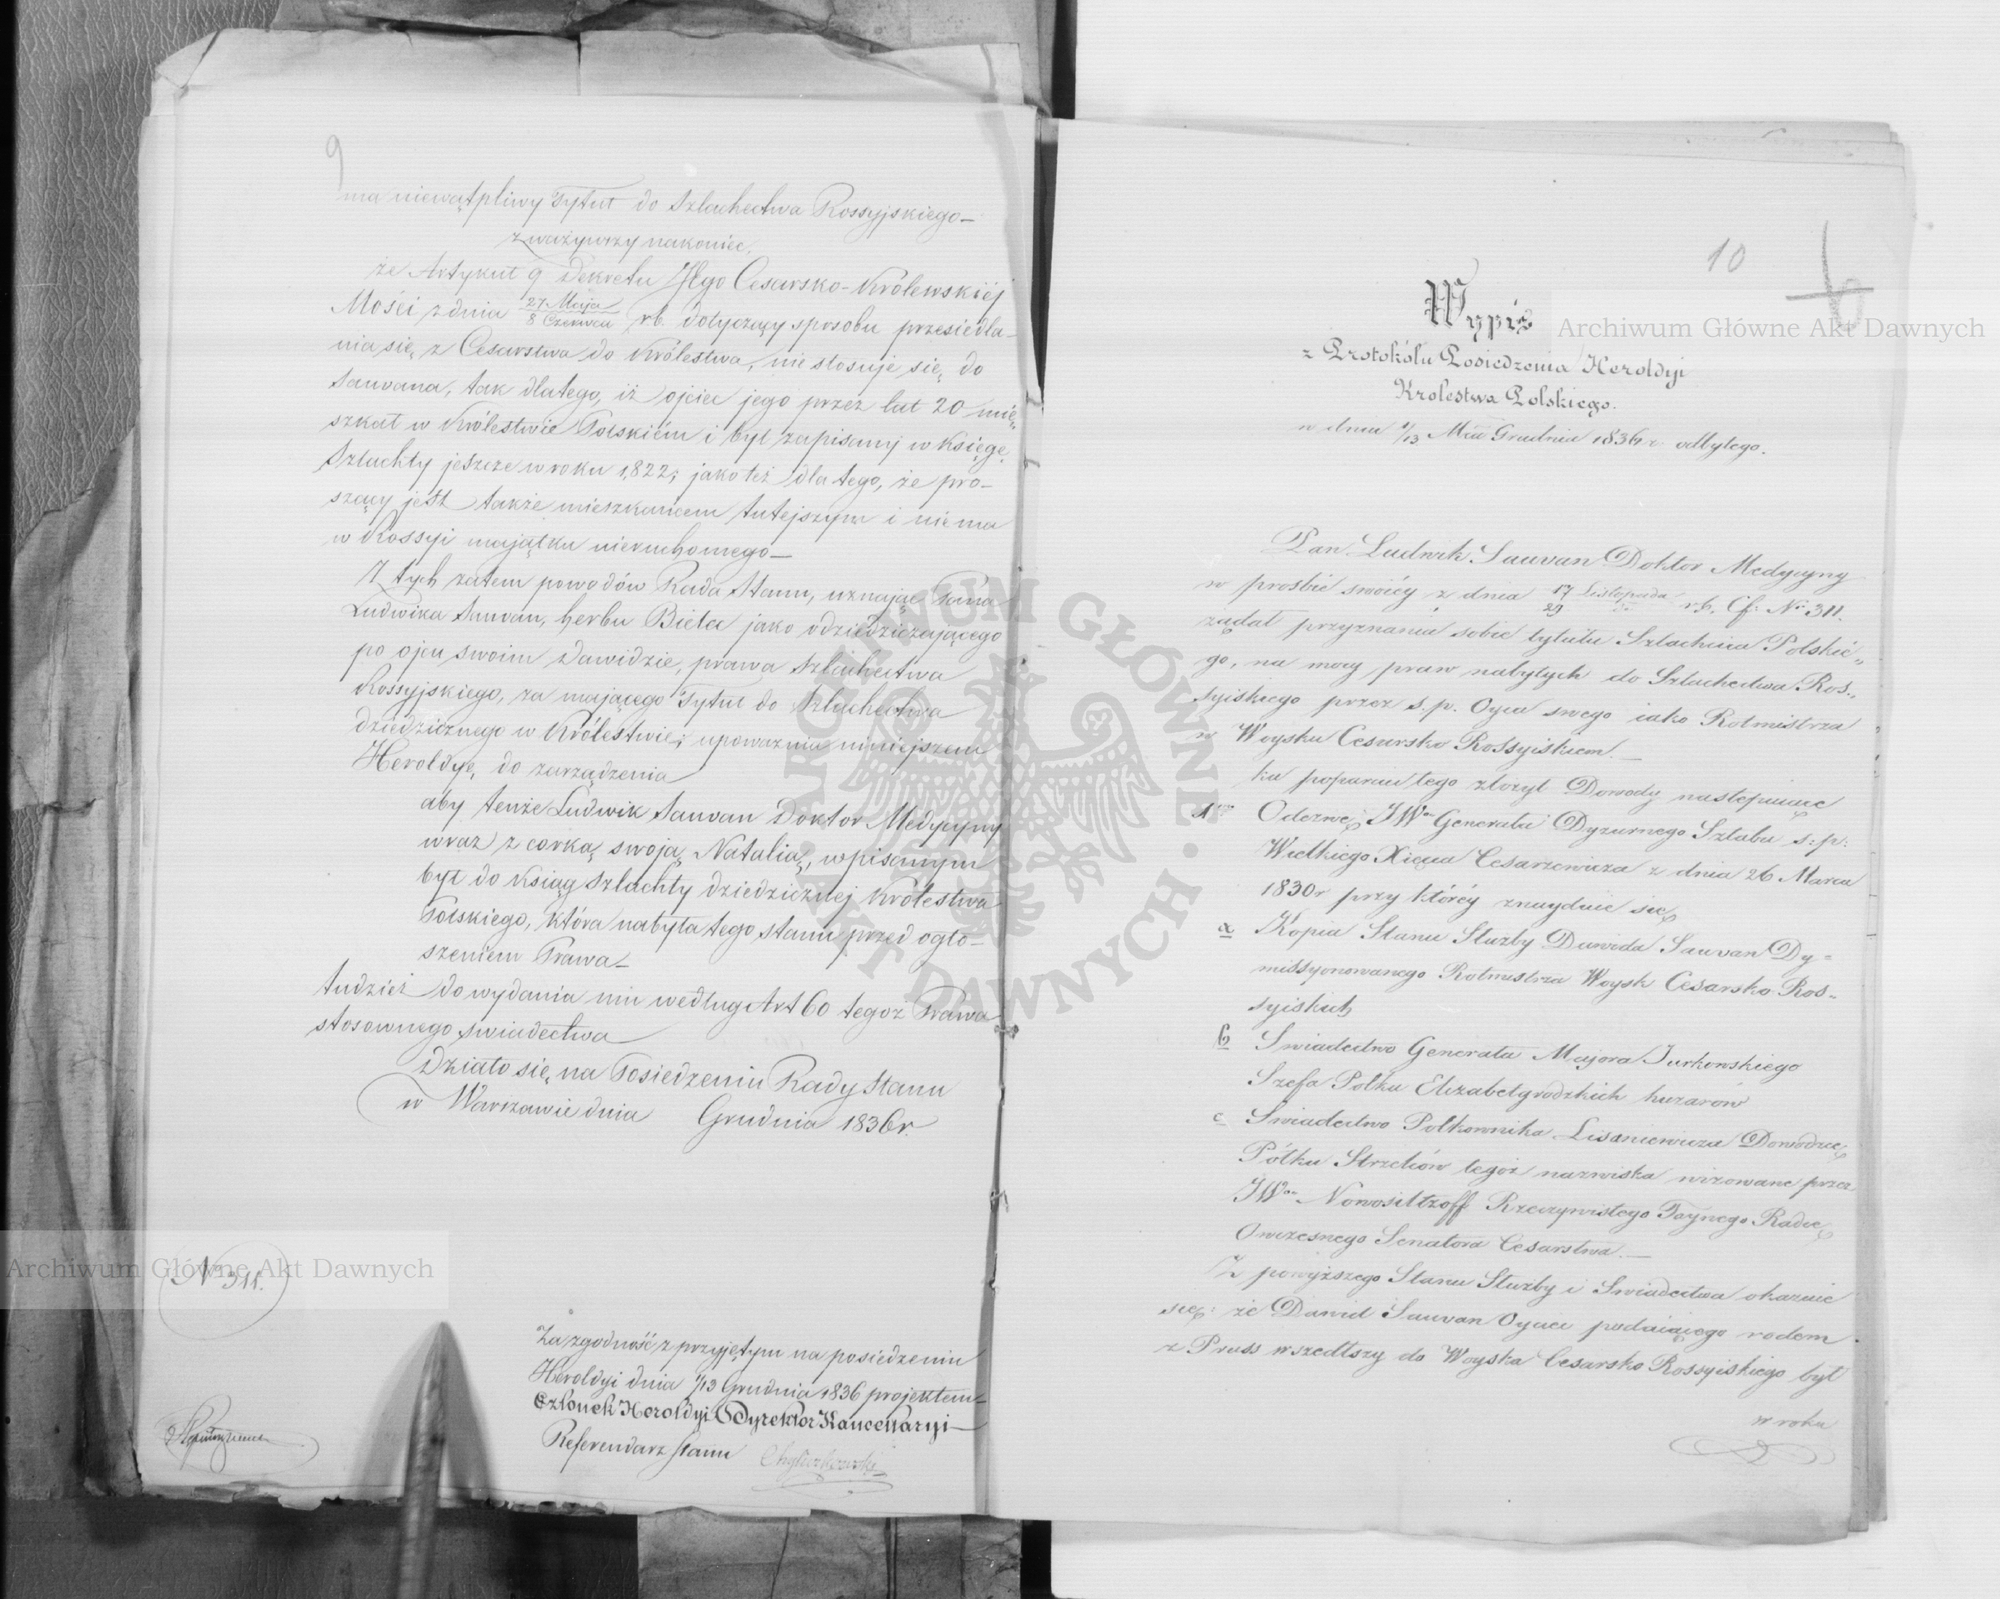 9
ma niewątpliwy Tytuł do Szlachectwa Rossyjskiego—
zważywszy nakoniec,
że Artykuł 9 Dekretu Jego Cesarsko-Królewskiéj
Mości z dnia 27 Maja / 8 Czerwca r.b. dotyczący sposobu przesiedla-
nia się z Cesarstwa do Królestwa, nie stosuje się do
Sauvana, tak dlatego, iż ojciec jego przez lat 20 mie„
szkał w Królestwie Polskiém i był zapisany w Księgę
Szlachty jeszcze w roku 1822; jako też dla tego, że pro-
szący jest także mieszkańcem tutejszym i nie ma
w Rossyi majątku nieruchomego—
Z tych zatem powodów Rada Stanu, uznając Pana
Ludwika Sauvan, herbu Bielec jako odziedziczającego
po ojcu swoim Dawidzie, prawa Szlachectwa
Rossyjskiego, za mającego Tytuł do Szlachectwa
dziedzicznego w Królestwie; upoważnia niniejszem
Heroldyę, do zarządzenia
aby tenże Ludwik Sauvan Doktor Medycyny
wraz z córką swoją Natalią, wpisanym
był do Ksiąg Szlachty dziedzicznej Królestwa
Polskiego, która nabyła tego stanu przed ogło-
szeniem Prawa—
tudzież do wydania mu według Art 60 tegoż Prawa
stosownego swiadectwa
Działo się na Posiedzeniu Rady Stanu
w Warszawie dnia Grudnia 1836 r.
No 311.
Za zgodność z przyjętym na posiedzeniu
Heroldyi dnia 1/13 Grudnia 1836 projektem—
Członek Heroldyi Dyrektor Kancellaryi—
Referendarz Stanu
10
6
Wypis
z Protokółu Posiedzenia Heroldyi
Krolestwa Polskiego.
w dniu 1/13 Mca Grudnia 1836 r. odbytego.
Pan Ludwik Sauvan Doktor Medycyny
w prosbie swoiéy z dnia 17/29 Listopada r.b. Cf: No 311.
żądał przyznania sobie tytułu Szlachcica Polskie„
go, na mocy praw nabytych do Szlachectwa Ros„
syiskiego przez s.p. Oyca swego iako Rotmistrza
w Woysku Cesarsko Rossyiskiem.—
Na poparcie tego złożył Dowody następuiące
1mo Odezwę JWo Generała Dyżurnego Sztabu s:p:
Wielkiego Xięcia Cesarzewicza z dnia 26 Marca
1830 r przy któréy znayduie się
a Kopia Stanu Służby Dawida Sauvan Dy=
missyonowanego Rotmistrza Woysk Cesarsko Ros-
syiskich
b Swiadectwo Generała Majora Jurkowskiego
Szefa Pólku Elizabetgrodzkich huzarów
c Swiadectwo Pólkownika Lisaniewicza Dowodzcę
Pólku Strzelców tegoż nazwiska wizowane przez
JWo Nowosiltzoff Rzeczywistego Taynego Radcę
Owczesnego Senatora Cesarstwa.—
Z powyższego Stanu Służby i Swiadectwa okazuie
się: że Dawid Sauvan Oyciec podaiącego rodem
z Pruss wszedłszy do Woyska Cesarsko Rossyiskiego był
w roku
Archiwum Główne Akt Dawnych
Archiwum Główne Akt Dawnych
ARCHIWUM GŁÓWNE AKT DAWNYCH